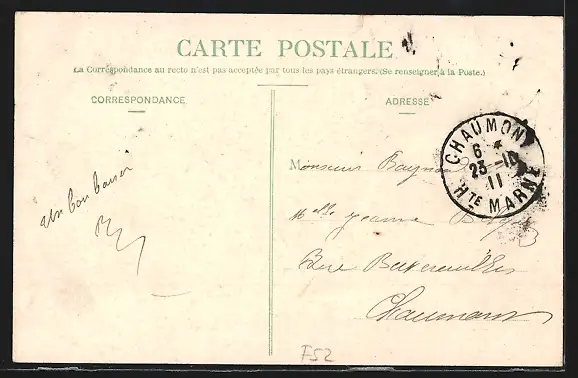 CARTE POSTALE
La Correspondance au recto n'est pas acceptée par tous les pays étrangers. (Se renseigner à la Poste.)
CORRESPONDANCE
ADRESSE
CHAUMONT
6
23-10
11
HTE MARNE
Un bon baiser
Monsieur
Melle Jeanne
Chaumont
F52